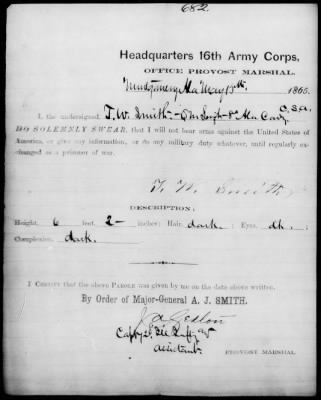 682
Headquarters 16th Army Corps,
OFFICE PROVOST MARSHAL,
Montgomery Ala May 15th 1865.
I, the undersigned, T. W. Smith – Qm Sergt – 8" Ala Cavy C.S.A.
DO SOLEMNLY SWEAR, that I will not bear arms against the United States of
America, or give any information, or do any military duty whatever, until regularly ex-
changed as a prisoner of war.
T. W. Smith
DESCRIPTION:
Height, 6 feet, 2 inches; Hair, dark.; Eyes, dk.;
Complexion, dark.
I CERTIFY that the above PAROLE was given by me on the date above written.
By Order of Major-General A. J. SMITH.
Capt
Assistant
PROVOST MARSHAL